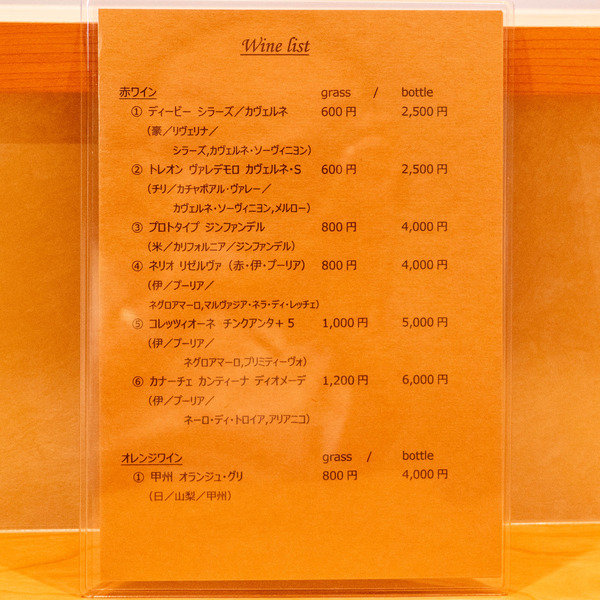 Wine list
赤ワイン grass / bottle
① ディービー シラーズ／カヴェルネ 600円 2,500円
（豪／リヴェリナ／
シラーズ,カヴェルネ・ソーヴィニヨン）
② トレオン ヴァレデモロ カヴェルネ・S 600円 2,500円
（チリ／カチャポアル・ヴァレー／
カヴェルネ・ソーヴィニヨン,メルロー）
③ プロトタイプ ジンファンデル 800円 4,000円
（米／カリフォルニア／ジンファンデル）
④ ネリオ リゼルヴァ（赤・伊・プーリア） 800円 4,000円
（伊／プーリア／
ネグロアマーロ,マルヴァジア・ネラ・ディ・レッチェ）
⑤ コレッツィオーネ チンクアンタ＋５ 1,000円 5,000円
（伊／プーリア／
ネグロアマーロ,プリミティーヴォ）
⑥ カナーチェ カンティーナ ディオメーデ 1,200円 6,000円
（伊／プーリア／
ネーロ・ディ・トロイア,アリアニコ）
オレンジワイン grass / bottle
① 甲州 オランジュ・グリ 800円 4,000円
（日／山梨／甲州）